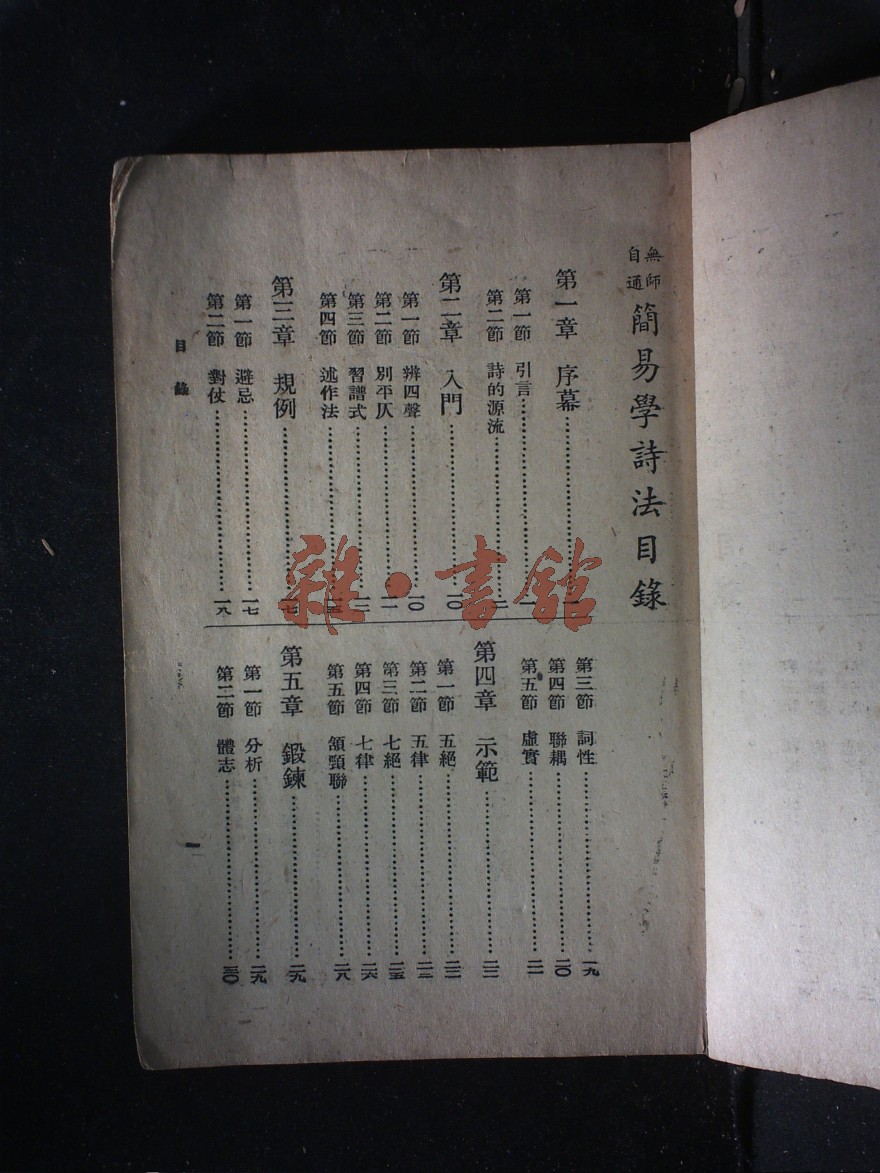 無師自通 簡易學詩法目錄
第一章 序幕……一
第一節 引言……一
第二節 詩的源流……
第二章 入門……一〇
第一節 辨四聲……一〇
第二節 別平仄……一一
第三節 習譜式……一二
第四節 述作法……一五
第三章 規例……一七
第一節 避忌……一七
第二節 對仗……一八
第三節 詞性……一九
第四節 聯耦……二〇
第五節 虛實……二一
第四章 示範……二二
第一節 五絕……二二
第二節 五律……二三
第三節 七絕……二五
第四節 七律……二六
第五節 頷頸聯……二八
第五章 鍛鍊……二九
第一節 分析……二九
第二節 體志……三〇
目錄
一
雜·書館